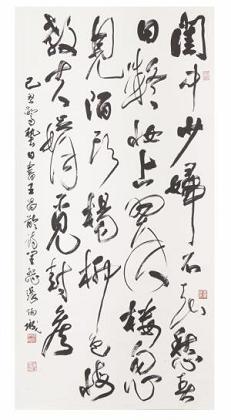 閨中少婦不知愁春
日凝妝上翠樓忽
見陌頭楊柳色悔
教夫婿覓封侯
己丑 日書王昌齡詩